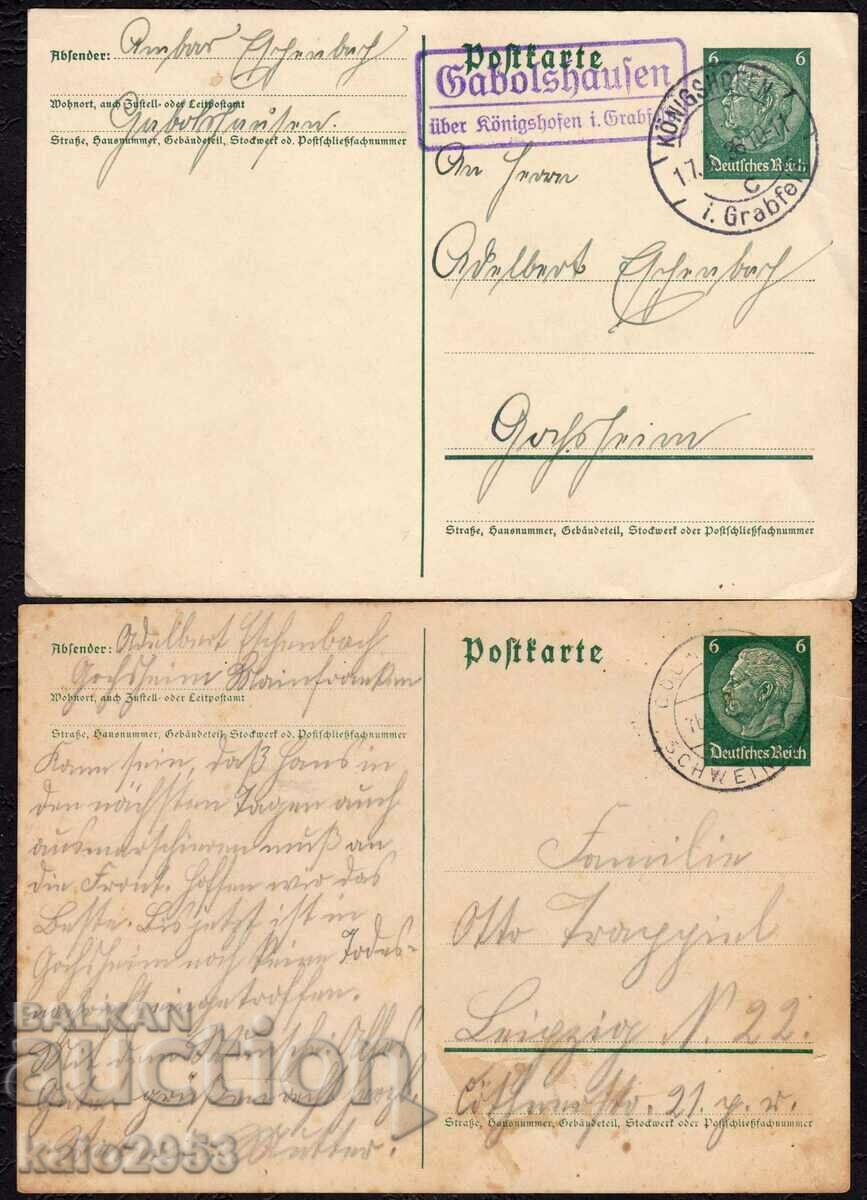 Absender: Ambros Eschenbach
Wohnort, auch Zustell- oder Leitpostamt
Gabolshausen.
Straße, Hausnummer, Gebäudeteil, Stockwerk od. Postschließfachnummer
Postkarte
Gabolshausen
über Königshofen i. Grabfeld
6 6
Deutsches Reich
KÖNIGSHOFEN
17. 36 10-11
c
i. Grabfeld
An Herrn
Adelbert Eschenbach
Gochsheim
Straße, Hausnummer, Gebäudeteil, Stockwerk oder Postschließfachnummer
Absender: Adelbert Eschenbach
Gochsheim Mainfranken
Wohnort, auch Zustell- oder Leitpostamt
Straße, Hausnummer, Gebäudeteil, Stockwerk od. Postschließfachnummer
Kann sein, daß Hans in
den nächsten Tagen auch
ausmarschieren muß an
die Front. Hoffen wir das
Beste. Bis jetzt ist in
Gochsheim noch keine Todes-
nachricht eingetroffen.
grüßen euch herzl.
Mutter.
Postkarte
6 6
Deutsches Reich
SCHWEIN
Familie
Otto Trappiel
Leipzig N. 22.
Cöthnerstr. 21. p. r.
Straße, Hausnummer, Gebäudeteil, Stockwerk oder Postschließfachnummer
BALKAN
auction
kaio2953